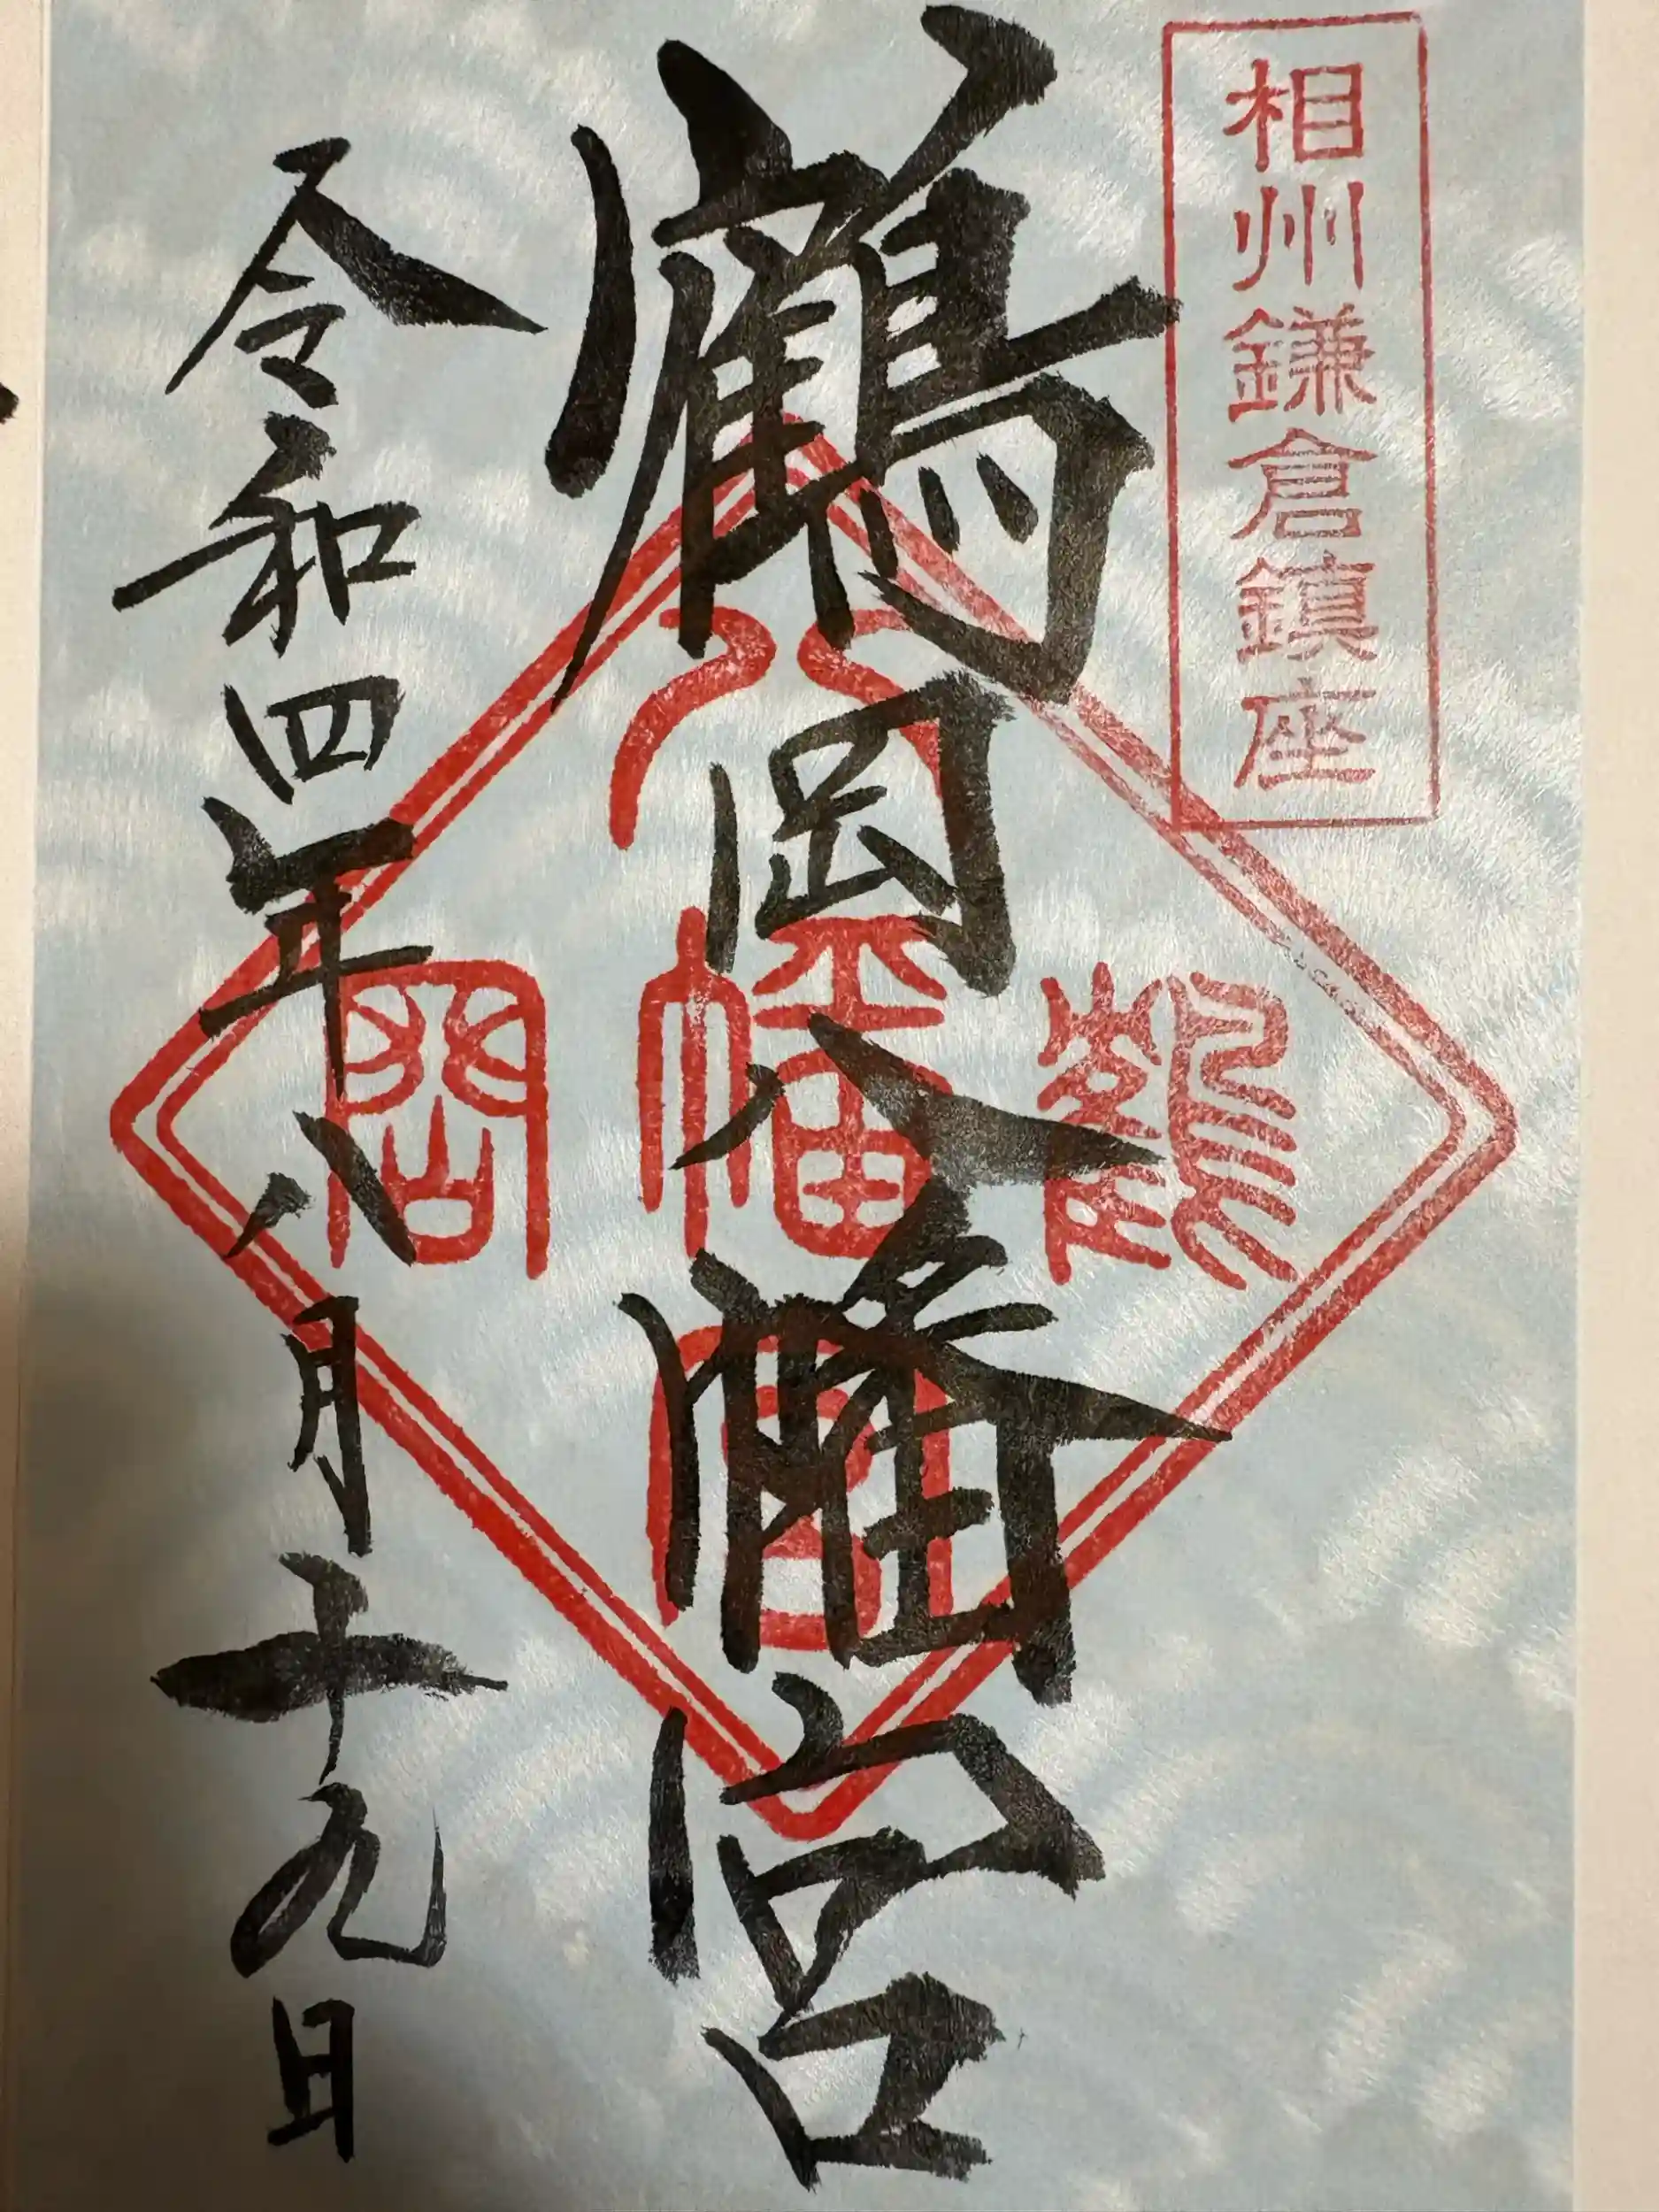 相州鎌倉鎮座
鶴岡八幡宮
鶴
八幡宮
岡
令和四年八月十九日